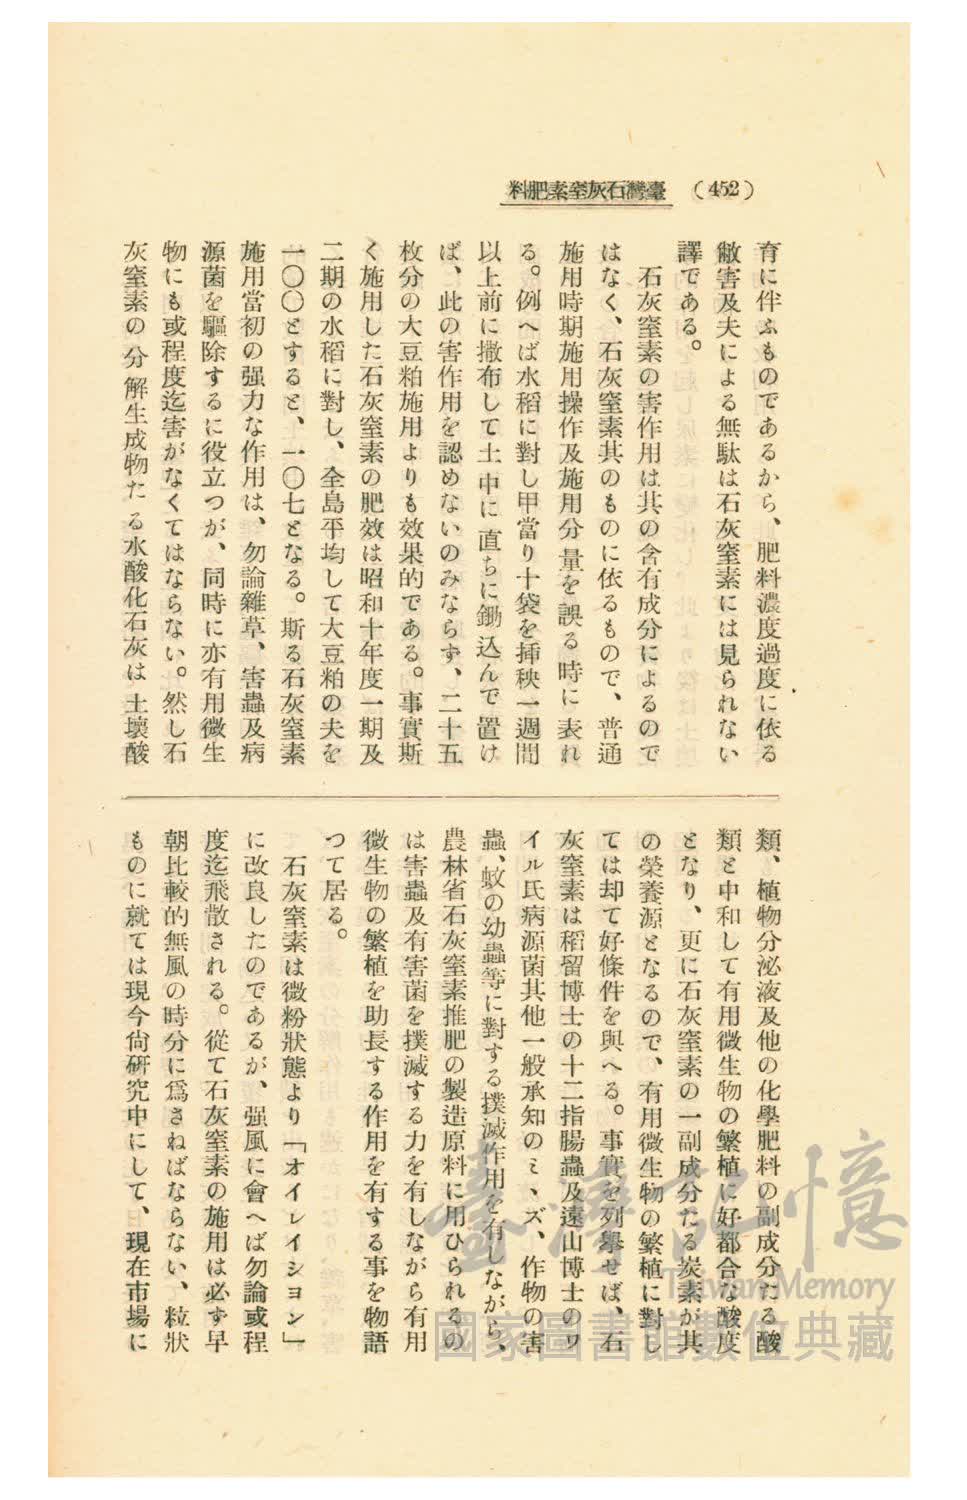 (452) 臺灣石灰窒素肥料
育に伴ふものであるから、肥料濃度過度に依る
敝害及夫による無駄は石灰窒素には見られない
譯である。
石灰窒素の害作用は其の含有成分によるので
はなく、石灰窒素其のものに依るもので、普通
施用時期施用操作及施用分量を誤る時に表れ
る。例へば水稻に對し甲當り十袋を挿秧一週間
以上前に撒布して土中に直ちに鋤込んで置け
ば、此の害作用を認めないのみならず、二十五
枚分の大豆粕施用よりも效果的である。事實斯
く施用した石灰窒素の肥效は昭和十年度一期及
二期の水稻に對し、全島平均して大豆粕の夫を
一〇〇とすると、一〇七となる。斯る石灰窒素
施用當初の强力な作用は、勿論雜草、害蟲及病
源菌を驅除するに役立つが、同時に亦有用微生
物にも或程度迄害がなくてはならない。然し石
灰窒素の分解生成物たる水酸化石灰は土壤酸
類、植物分泌液及他の化學肥料の副成分たる酸
類と中和して有用微生物の繁植に好都合な酸度
となり、更に石灰窒素の一副成分たる炭素が其
の榮養源となるので、有用微生物の繁植に對し
ては却て好條件を與へる。事實を列擧せば、石
灰窒素は稻留博士の十二指腸蟲及遠山博士のワ
イル氏病源菌其他一般承知のミヽズ、作物の害
蟲、蚊の幼蟲等に對する撲滅作用を有しながら、
農林省石灰窒素推肥の製造原料に用ひられるの
は害蟲及有害菌を撲滅する力を有しながら有用
微生物の繁植を助長する作用を有する事を物語
つて居る。
石灰窒素は微粉狀態より「オイレイシヨン」
に改良したのであるが、强風に會へば勿論或程
度迄飛散される。從て石灰窒素の施用は必ず早
朝比較的無風の時分に爲さねばならない、粒狀
ものに就ては現今尙硏究中にして、現在市場に
臺灣記憶
Taiwan Memory
國家圖書館數位典藏